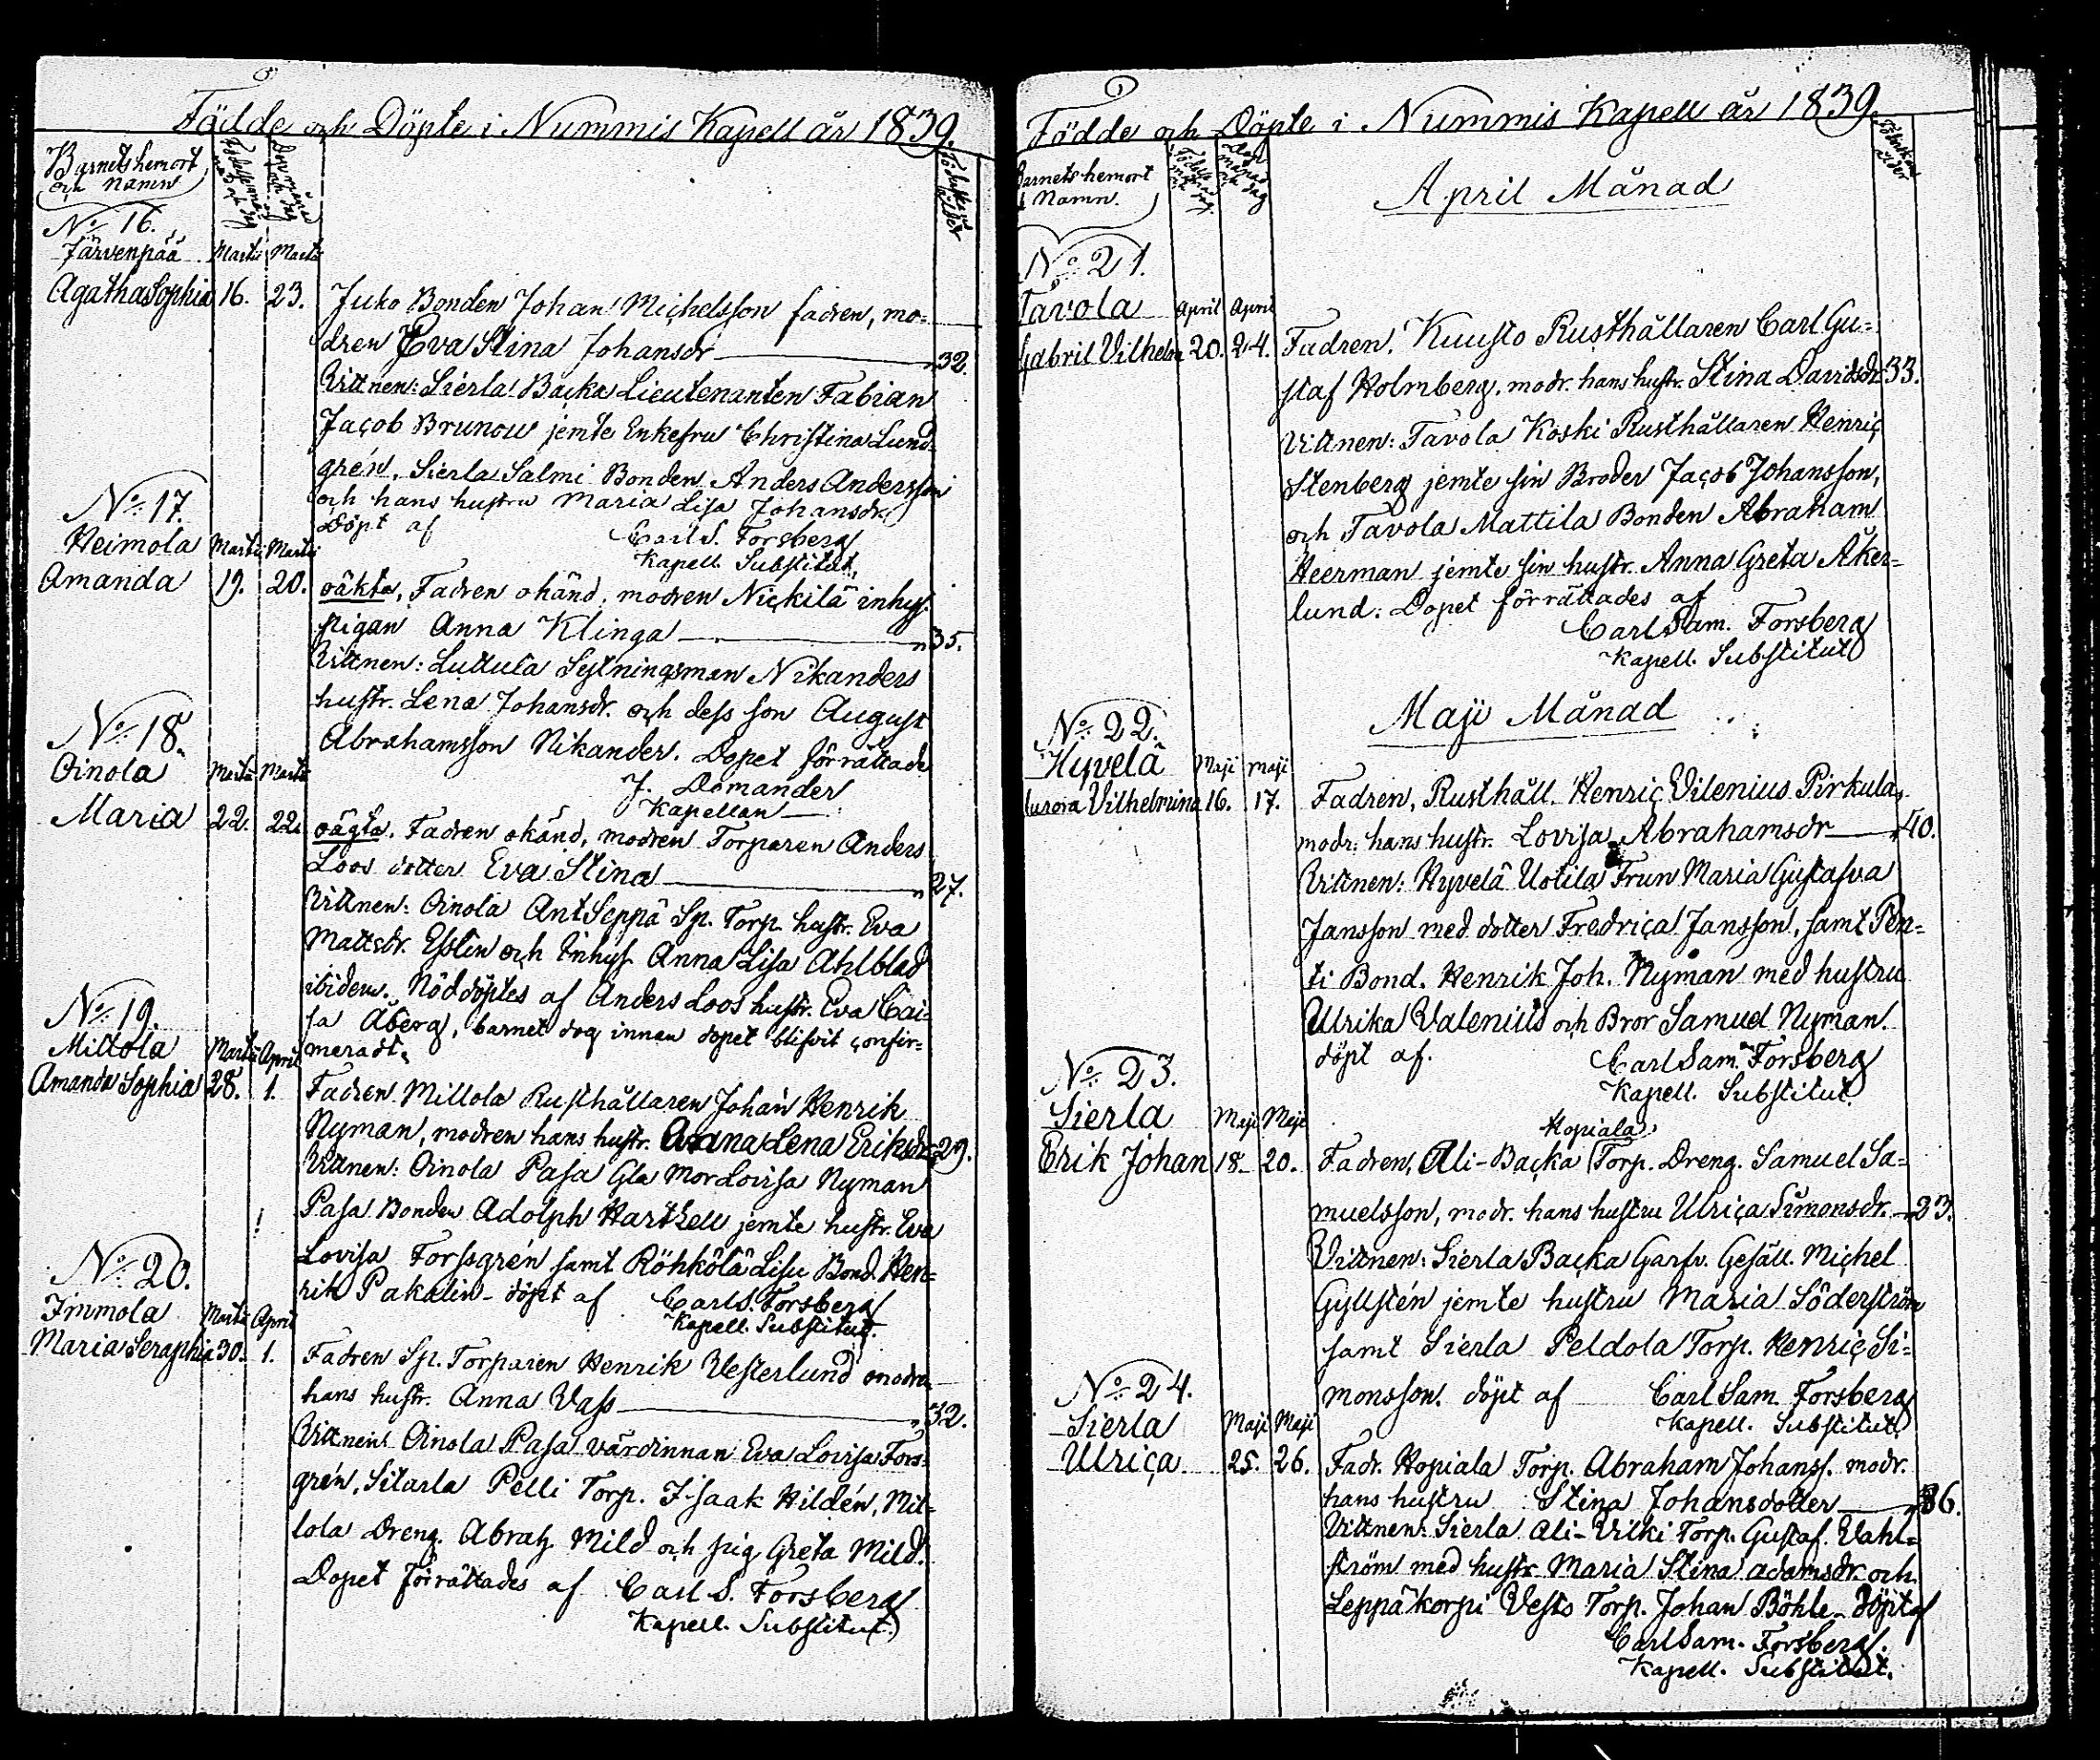 Födde och Döpte i Nummis Kapell år 1839.
Barnets hemort
och namn
No 16.
Järvenpää Martii Martii
Agatha Sophia 16. 23. Juko Bonden Johan Michelsson fadren, mo-
dren Eva Stina Johansdr 32.
Vittnen: Sierla Backa Lieutenanten Fabian
Jacob Brunou jemte Enkefru Christina Lund-
grén, Sierla Salmi Bonden Anders Andersson
och hans hustru Maria Lisa Johansdr
Döpt af Carl S. Forsberg
Kapell. Substitut.
No 17.
Heimola Martii Martii
Amanda 19. 20. oäkta, Fadren okänd, modren Nickilä inhys.
pigan Anna Klinga 35.
Vittnen: Luttula Sytningsman Nikanders
hustr. Lena Johansdr. och dess son August
Abrahamsson Nikander. Dopet förrättade
J. Domander
Kapellan
No 18.
Oinola Martii Martii
Maria 22. 22. oägta. Fadren okänd, modren Torparen Anders
Loos dotter Eva Stina 27.
Vittnen: Oinola AntSeppä Sp. Torp. hustr. Eva
Mattsdr. Esslin och Inhys Anna Lisa Ahlblad
ibidem. Nöddöptes af Anders Loos hustr. Eva Cai-
sa Åberg, barnet dog innan dopet blifvit confir-
meradt.
No 19.
Millola Martii April
Amanda Sophia 28. 1. Fadren Millola Rusthållaren Johan Henrik
Nyman, modren hans hustr. Anna Lena Eriksdr 29.
Vittnen: Oinola Pasa Gla Mor Lovisa Nyman
Pasa Bonden Adolph Harthell jemte hustr. Eva
Lovisa Forssgrén samt Röhkölä Lisu Bond. Hen-
rik Pakalin - döpt af Carl S. Forsberg
Kapell. Substitut.
No 20.
Immola Martii April
Maria Seraphia 30. 1. Fadren Sp. Torparen Henrik Vesterlund modren
hans hustr. Anna Vass 32.
Vittnen Oinola Pasa värdinnan Eva Lovisa Fors-
grén, Sitarla Pelli Torp. Isaak Hildén, Mil-
lola Dreng. Abrah. Mild och pig Greta Mild.
Dopet förrättades af Carl S. Forsberg
Kapell. Substitut.
Födde och Döpte i Nummis Kapell år 1839.
Barnets hemort
Namn.
April Månad
No 21.
Tavola April April
Gabril Vilhelm 20. 24. Fadren. Kuusto Rusthållaren Carl Gu-
staf Holmberg, modr. hans hustr. Stina Davidsdr 33.
Vittnen: Tavola Koski Rusthållaren Henric
Stenberg jemte sin Broder Jacob Johansson,
och Tavola Mattila Bonden Abraham
Heerman jemte sin hustr. Anna Greta Åker-
lund: Dopet förrättades af
Carl Sam. Forsberg
Kapell. Substitut
Maji Månad
No 22.
Hyvelä Maji Maji
Aurora Vilhelmina 16. 17. Fadren, Rusthåll. Henric Vilenius Pirkula,
modr: hans hustr. Lovisa Abrahamsdr 40.
Vittnen: Hyvelä Uotila Frun Maria Gustafva
Jansson med dotter Fredrica Jansson, samt Pen-
ti Bond. Henrik Joh. Nyman med hustru
Ulrika Valenius och Bror Samuel Nyman.
döpt af. Carl Sam. Forsberg
Kapell. Substitut
No 23.
Sierla Maji Maji
Hopiala
Erik Johan 18. 20. Fadren, Ali-Backa Torp. Dreng. Samuel Sa-
muelsson, modr. hans hustru Ulrica Simonsdr. 23.
Vittnen: Sierla Backa Garfv. Gesäll. Michel
Gyllstén jemte hustru Maria Söderström
samt Sierla Peldola Torp. Henric Si-
monsson. döpt af Carl Sam. Forsberg
Kapell. Substitut.
No 24.
Sierla Maji Maji
Ulrica. 25. 26. Fadr. Hopiala Torp. Abraham Johanss. modr.
hans hustru Stina Johansdotter 36.
Vittnen: Sierla Ali-Vilki Torp. Gustaf. Vahl-
ström med hustr. Maria Stina Adamsdr. och
Leppäkorpi Vests Torp. Johan Böhle - döpt af
Carl Sam. Forsberg.
Kapell. Substitut.